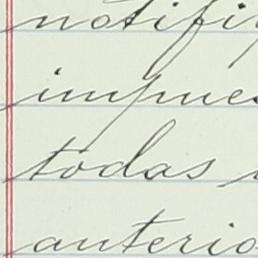 notifi
impues
todas
anterio